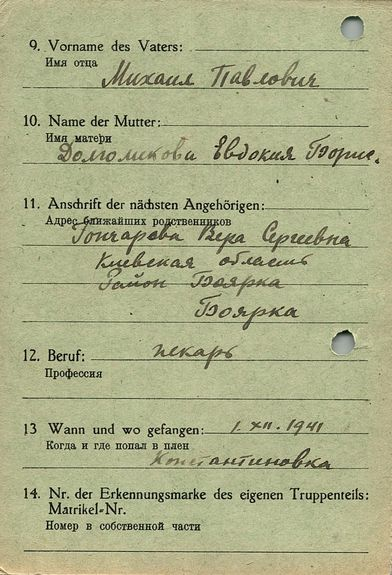 9. Vorname des Vaters:
Имя отца
Михаил Павлович
10. Name der Mutter:
Имя матери
Долголикова Евдокия Борис.
11. Anschrift der nächsten Angehörigen:
Адрес ближайших родственников
Гончарова Вера Сергиевна
Киевская область
Район Боярка
Боярка
12. Beruf: пекарь
Профессия
13 Wann und wo gefangen: 1. XII. 1941
Когда и где попал в плен
Константиновка
14. Nr. der Erkennungsmarke des eigenen Truppenteils:
Matrikel-Nr.
Номер в собственной части